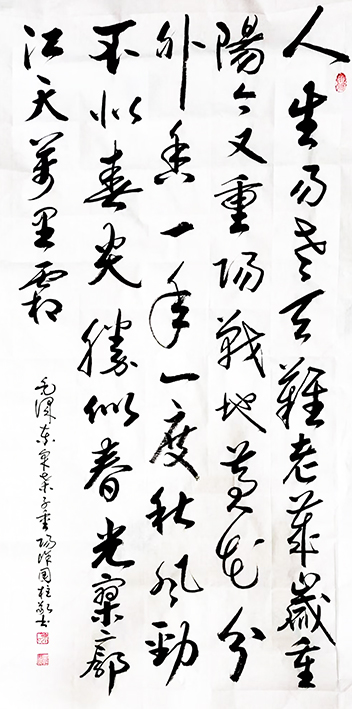 人生易老天難老歲歲重
陽今又重陽戰地黄花分
外香一年一度秋風勁
不似春光勝似春光寥廓
江天萬里霜
毛澤東采桑子重陽國柱敬书